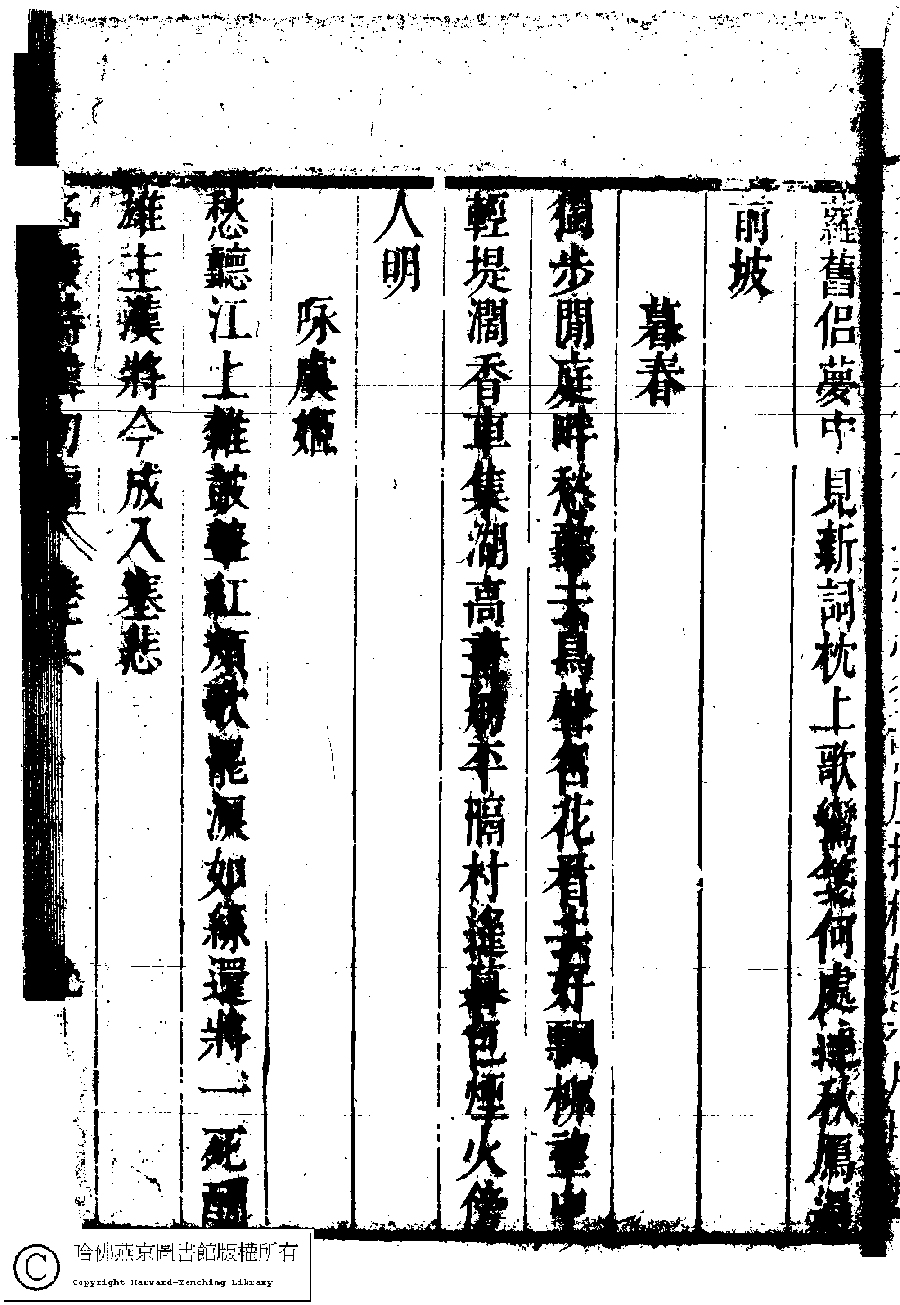 蘿舊侶夢中見新詞枕上歌鸞箋何處達秋鴈過
前坡
暮春
獨步閒庭畔愁聽去鳥聲名花看去好飄柳望中
輕堤濶香車集湖高畫舫平隔村逢暮色煙火傍
人明
咏虞姬
愁聽江上雜鼓鼙紅顏歌罷淚如絲還將一死酬
雄主漢將今成入墓悲
名媛詩緯初編
哈佛燕京圖書館版權所有
Copyright Harvard-Yenching Library